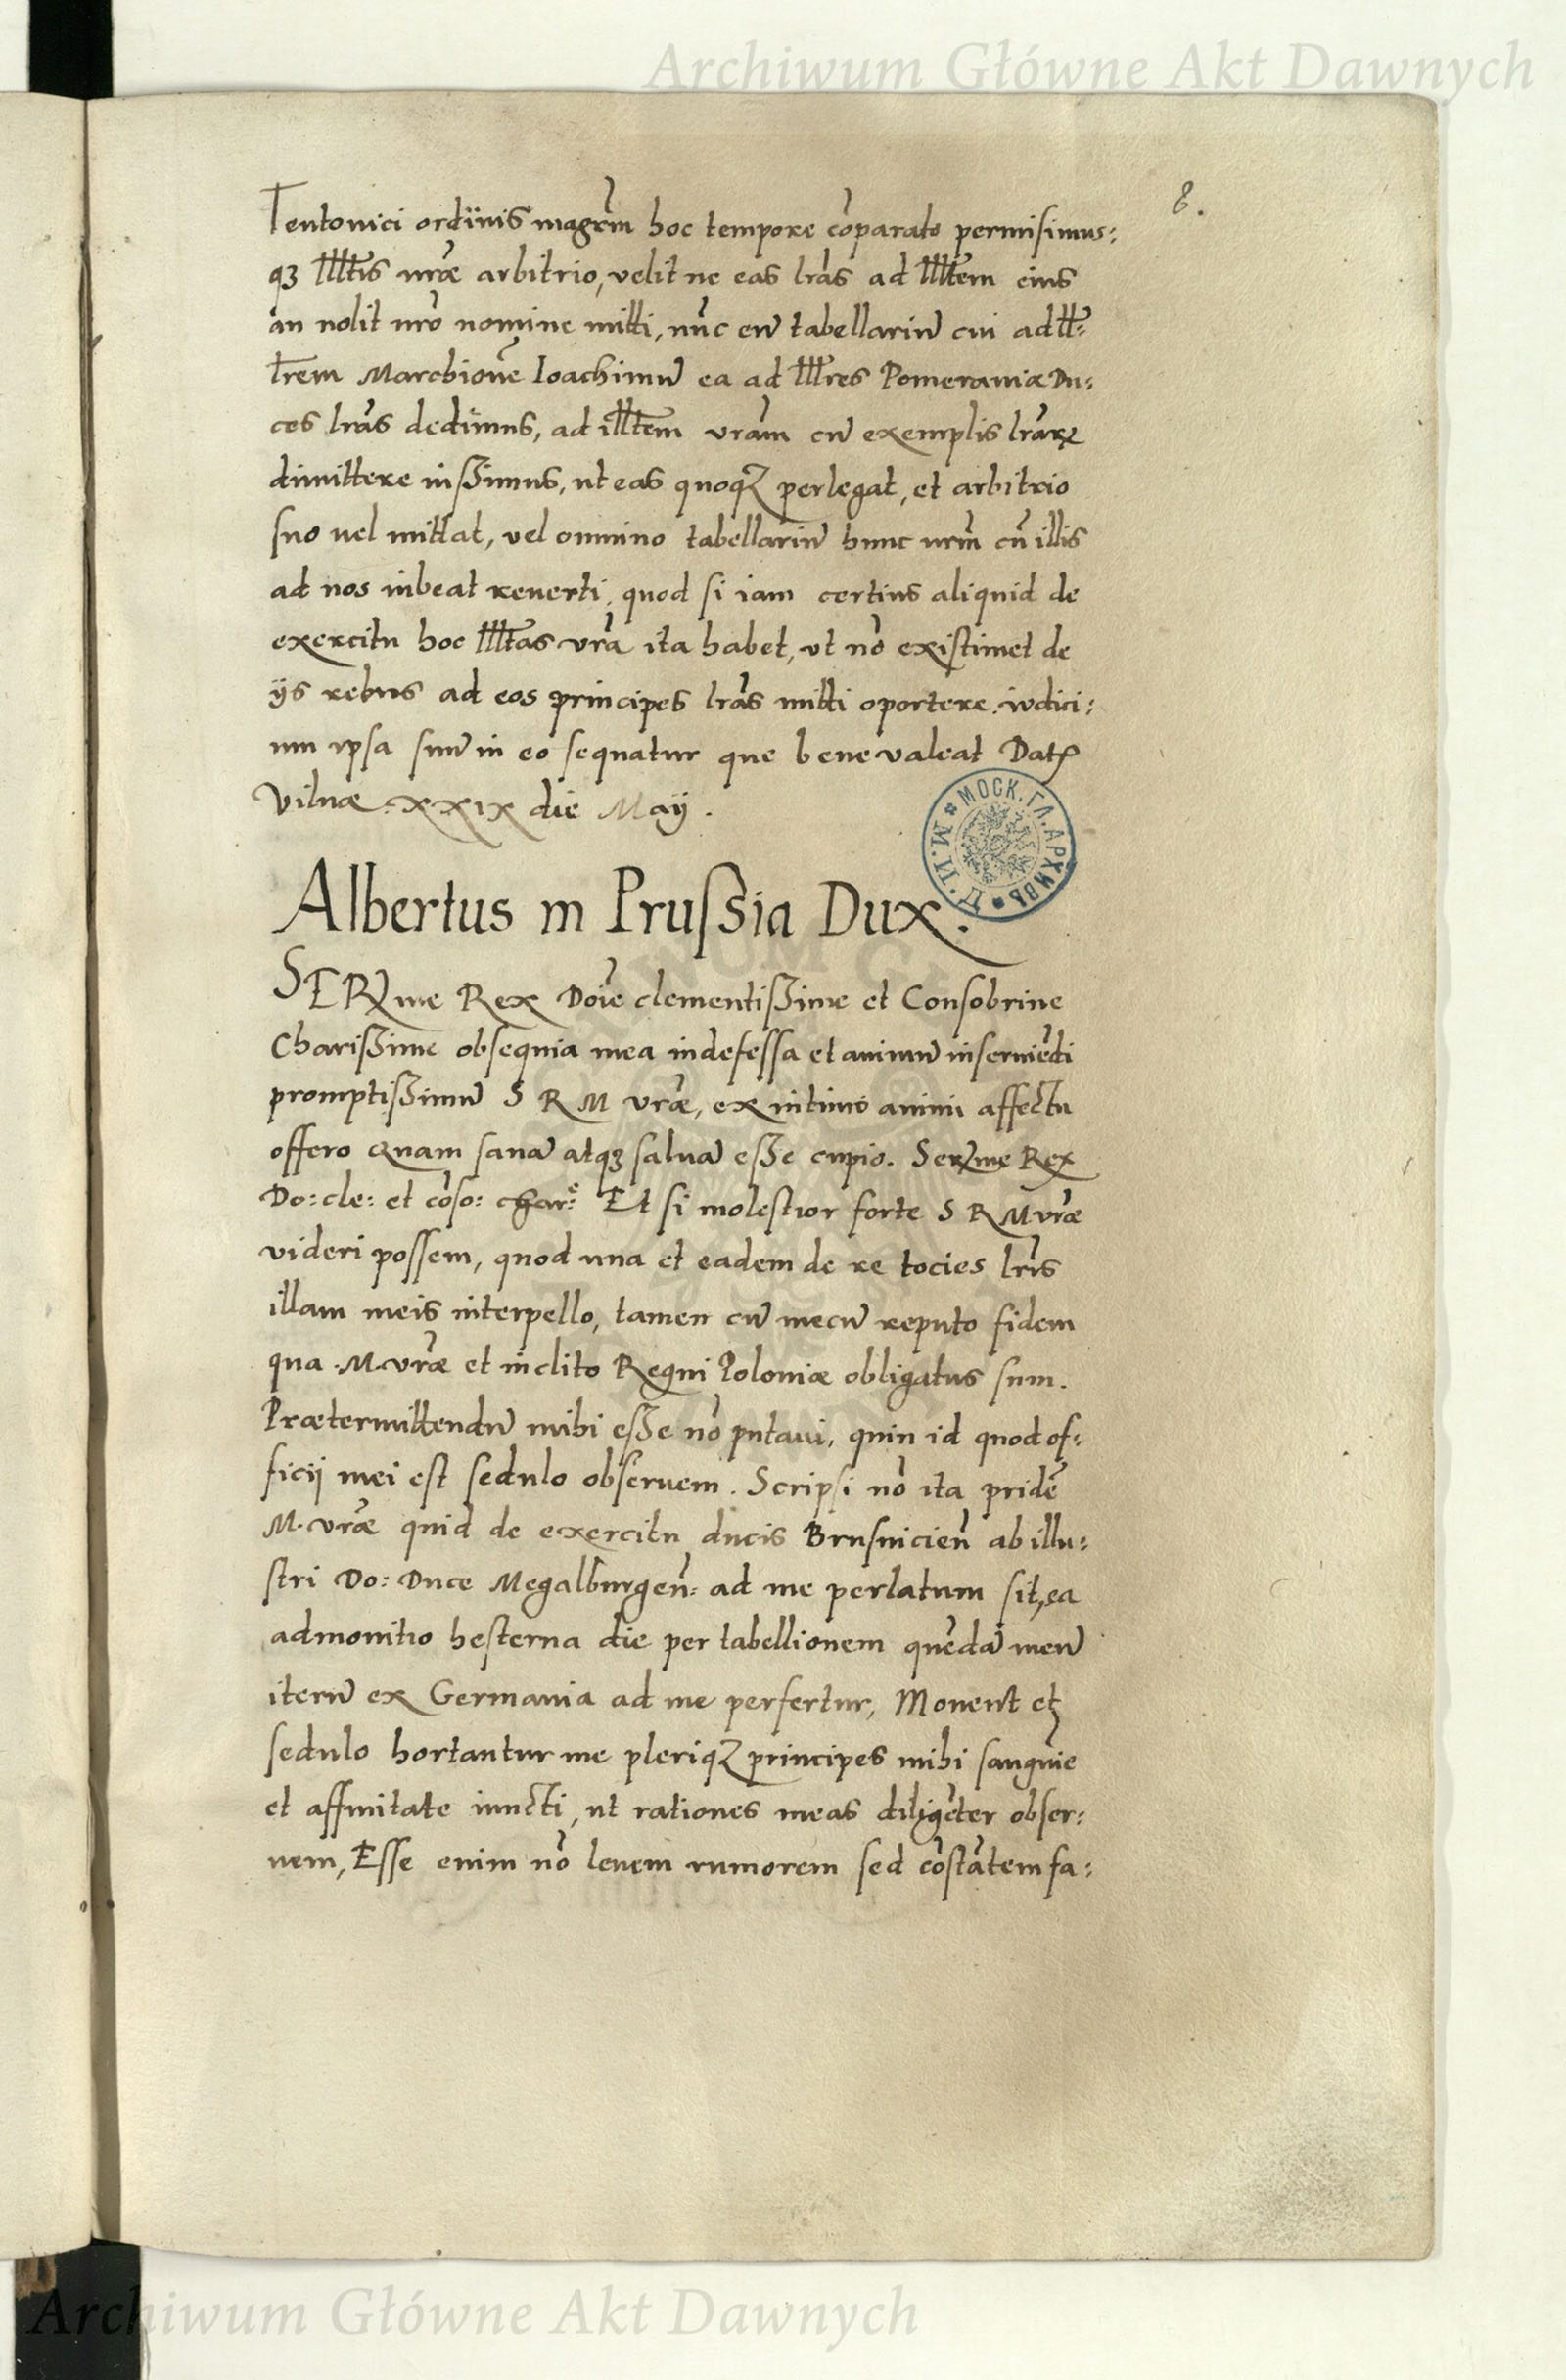 Archiwum Główne Akt Dawnych
8.
Teutonici ordinis magrm̃ hoc tempore cõparato permisimus:
qꝫ Illltis nr̃æ arbitrio, velit ne eas lr̃as ad Illltem eius
an nolit nr̃o nomine mitti, nũc eũ tabellariũ cui ad Ill-
trem Marchionẽ Ioachimũ ea ad Illres Pomeraniæ Du:
ces lr̃as dedimus, ad illtem vr̃am cũ exemplis lr̃arꝝ
dimittere iussimus, ut eas quoqꝫ perlegat, et arbitrio
suo uel mittat, vel omnino tabellariũ hunc nr̃m cũ illis
ad nos iubeat reuerti, quod si iam certius aliquid de
exercitu hoc Illltas vr̃a ita habet, vt nõ existimet de
ijs rebus ad eos principes lr̃as mitti oportere. iudici:
um ipsa suũ in eo sequatur que bene valeat Datꝭ
Vilnæ. xxix die Maij.
МОСК. ГЛ. АРХИВЪ * П. И. М. *
Albertus in Prussia Dux.
SERme Rex Doĩe clementissime et Consobrine
Charissime obsequia mea indefessa et animũ inseruiẽdi
promptissimũ S R M vr̃æ, ex intimo animi affectu
offero Quam sanã atqꝫ saluã esse cupio. Serme Rex
Do: cle: et cõso: char:e Et si molestior forte S R M vr̃æ
videri possem, quod una et eadem de re tocies lr̃is
illam meis interpello, tamen cũ mecũ reputo fidem
qua .M. vr̃æ et inclito Regni Poloniæ obligatus sum.
Prætermittendũ mihi esse nõ putaui, quin id quod of:
ficij mei est sedulo obseruem. Scripsi nõ ita pridẽ
M. vr̃æ quid de exercitu ducis Brusuicień ab illu:
stri Do: Duce Megalburgeñ: ad me perlatum sit, ea
admonitio hesterna die per tabellionem quẽdã meũ
iterũ ex Germania ad me perfertur, Monent et
sedulo hortantur me pleriqꝫ principes mihi sanguĩe
et affinitate iuncti, ut rationes meas diligẽter obser:
uem, Esse enim nõ leuem rumorem sed cõstãtem fa:
Archiwum Główne Akt Dawnych